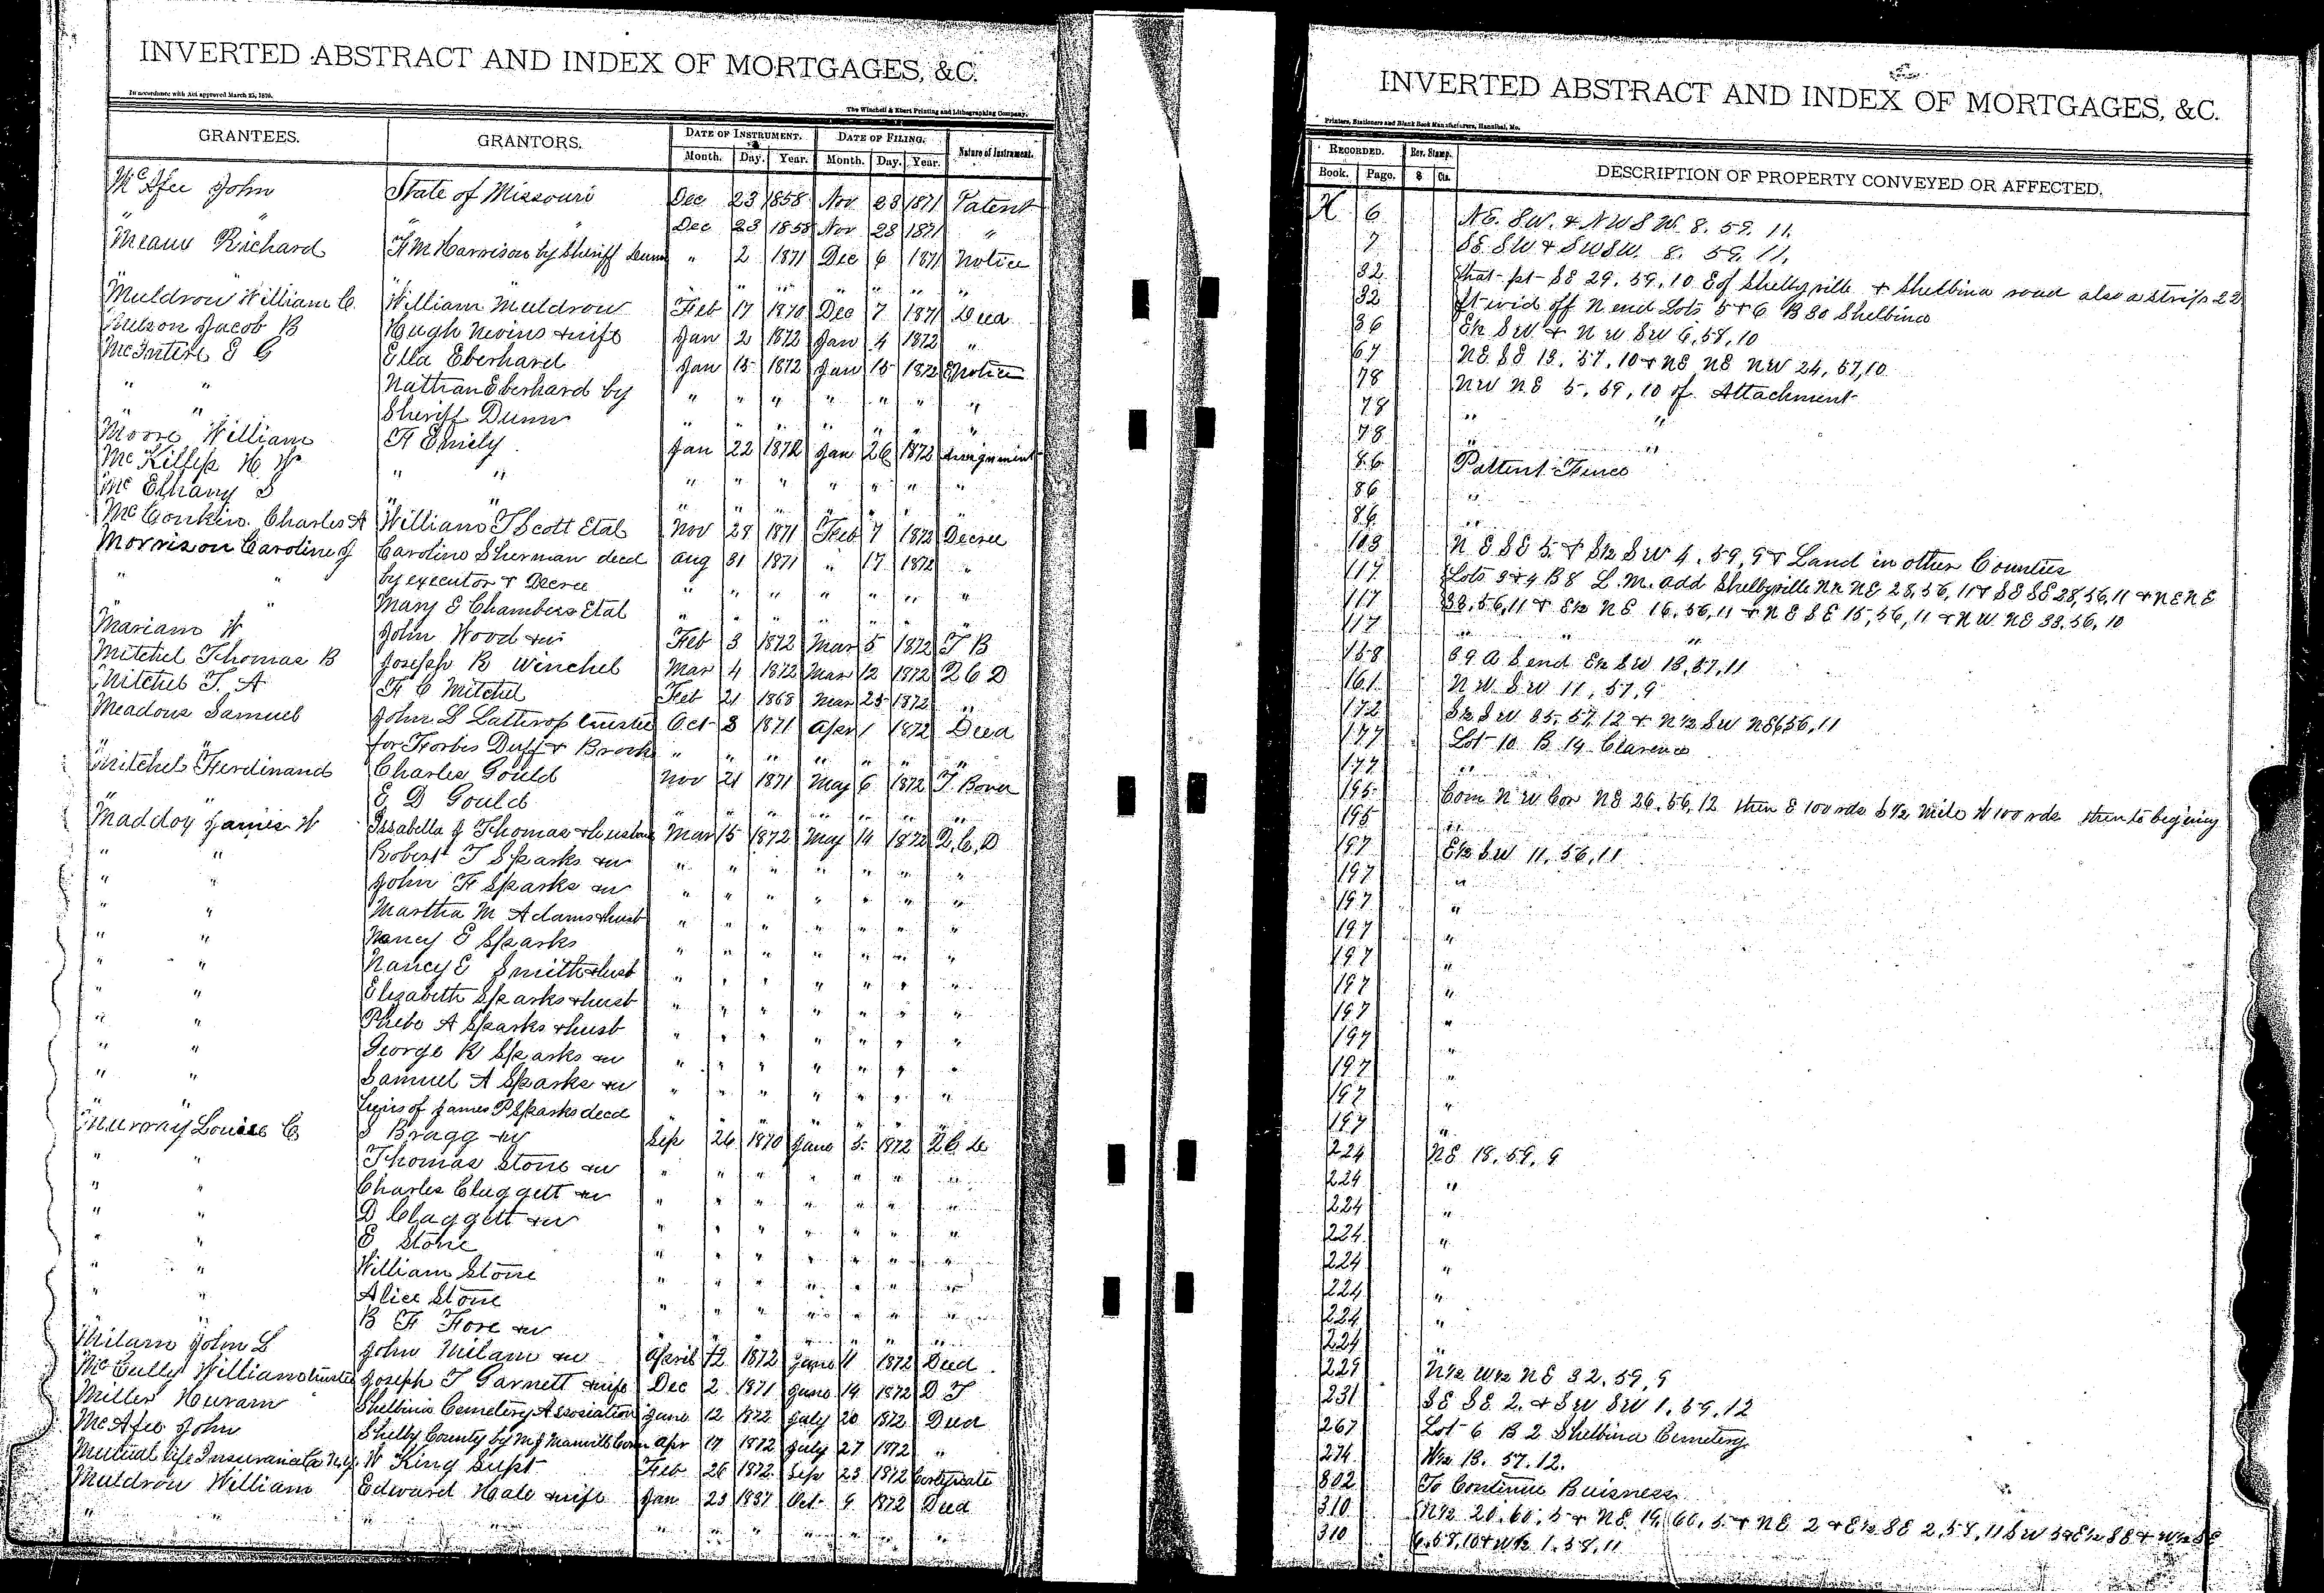 INVERTED ABSTRACT AND INDEX OF MORTGAGES, &C.
In accordance with Act approved March 25, 1875.
The Winchell & Ebert Printing and Lithographing Company,
GRANTEES. GRANTORS. DATE OF INSTRUMENT. DATE OF FILING. Nature of Instrument.
Month. Day. Year. Month. Day. Year.
McAfee John State of Missouri Dec 23 1858 Nov 28 1871 Patent
" " " Dec 23 1858 Nov 28 1871 "
Means Richard F M Harrison by Sheriff Dunn " 2 1871 Dec 6 1871 Notice
" " " " " "
Muldrow William C. William Muldrow Feb 17 1870 Dec 7 1871 Deed
Nelson Jacob B Hugh Nevins & wife Jan 2 1872 Jan 4 1872 "
McIntire E C Ella Eberhard Jan 15 1872 Jan 15 1872 Notice
" " Nathan Eberhard by " " " " " " "
" " Sheriff Dunn " " " " " " "
Moore William F Emily Jan 22 1872 Jan 26 1872 Assignment
McKillip H W " " " " " " " " "
McElhany S " " " " " " " " "
McConkin Charles A William T Scott Etal Nov 28 1871 Feb 7 1872 Decree
Morrison Caroline J Caroline Sherman decd Aug 31 1871 " 17 1872 "
" " by executor & Decree " " " " " " "
" " Mary E Chambers Etal " " " " " " "
Mariam W John Wood & w Feb 3 1872 Mar 5 1872 T B
Mitchel Thomas B Joseph R Winchel Mar 4 1872 Mar 12 1872 Q C D
Mitchel T. A F C Mitchel Feb 21 1868 Mar 25 1872 "
Meadows Samuel John L Lathrop trustee Oct 3 1871 Apr 1 1872 Deed
" " for Forbes Duff & Brock " " " " " " "
Mitchel Ferdinand Charles Gould Nov 21 1871 May 6 1872 T. Bond
" " E D Gould " " " " " " "
Maddox James W Issabella J Thomas & husband Mar 15 1872 May 14 1872 Q. C. D
" " Robert T Sparks & w " " " " " " "
" " John F Sparks & w " " " " " " "
" " Martha M Adams & husb " " " " " " "
" " Nancy E Sparks " " " " " " "
" " Nancy E Smith & husb " " " " " " "
" " Elizabeth Sparks & husb " " " " " " "
" " Phebe A Sparks & husb " " " " " " "
" " George R Sparks & w " " " " " " "
" " Samuel A Sparks & w " " " " " " "
" " heirs of James P Sparks decd " " " " " " "
Murray Louisa C S Bragg & w Sep 24 1870 June 5 1872 Q C D
" " Thomas Stone & w " " " " " " "
" " Charles Claggett & w " " " " " " "
" " D Claggett & w " " " " " " "
" " E Stone " " " " " " "
" " William Stone " " " " " " "
" " Alice Stone " " " " " " "
" " B F Fore & w " " " " " " "
Milam John L John Milam & w April 12 1872 June 11 1872 Deed
McCully William trustee Joseph T Garnett & wife Dec 2 1871 June 19 1872 D T
Miller Huram Shelbina Cemetery Association June 12 1872 July 20 1872 Deed
McAfee John Shelby County by M J Manville Com Apr 17 1872 July 27 1872 "
Mutual Life Insurance Co N.Y. W King Supt Feb 26 1872 Sep 23 1872 Certificate
Muldrow William Edward Hale & wife Jan 23 1837 Oct 9 1872 Deed
" " " " " " " " " "
INVERTED ABSTRACT AND INDEX OF MORTGAGES, &C.
Printers, Stationers and Blank Book Manufacturers, Hannibal, Mo.
RECORDED. Rev. Stamp. DESCRIPTION OF PROPERTY CONVEYED OR AFFECTED.
Book. Page. $ Cts.
X 6 NE. SW. & NW SW. 8. 59. 11.
7 SE SW & SW SW. 8. 59. 11.
32 that pt SE 29. 59. 10 E of Shelbyville & Shelbina road also a strip 22
32 ft wid off N end Lots 5 & 6 B 30 Shelbina
36 E½ SW & NW SW 6, 58, 10
67 NE SE 13. 57. 10 & NE NE NW 24, 57, 10
78 NW NE 5, 59, 10 of Attachment
78 " "
78 " "
86 Pattent Fence
86 "
86 "
103 NE SE 5 & S½ SW 4, 59, 9 & Land in other Counties
117 Lots 3 & 4 B 8 L. M. add Shelbyville N½ NE 28, 56, 11 & SE SE 28, 56, 11 & NE NE
117 33, 56, 11 & E½ NE 16, 56, 11 & NE SE 15, 56, 11 & NW NE 33. 56. 10
117 " " "
158 39 A S end E½ SW 13, 57, 11
161 NW SW 11, 57, 9
172 S½ SW 35, 57, 12 & N½ SW NE 6 56, 11
177 Lot 10 B 19 Clarence
177 "
195 Com NW Cor NE 26. 56, 12 then E 100 rds S ½ mile W 100 rds then to begining
195 "
197 E½ SW 11, 56, 11
197 "
197 "
197 "
197 "
197 "
197 "
197 "
197 "
197 "
197 "
224 NE 18, 59, 9
224 "
224 "
224 "
224 "
224 "
224 "
224
229 N½ W½ NE 32, 59, 9
231 SE SE 2. & SW SW 1. 59, 12
267 Lot 6 B 2 Shelbina Cemetery
274 W½ 13. 57. 12.
302 To Continue Buisness
310 N½ 20, 60, 5 & NE 19, 60, 5 & NE 2 & E½ SE 2, 58, 11 SW 3 & E½ SE & W½ SE
310 6, 58, 10 & W½ 1. 58, 11